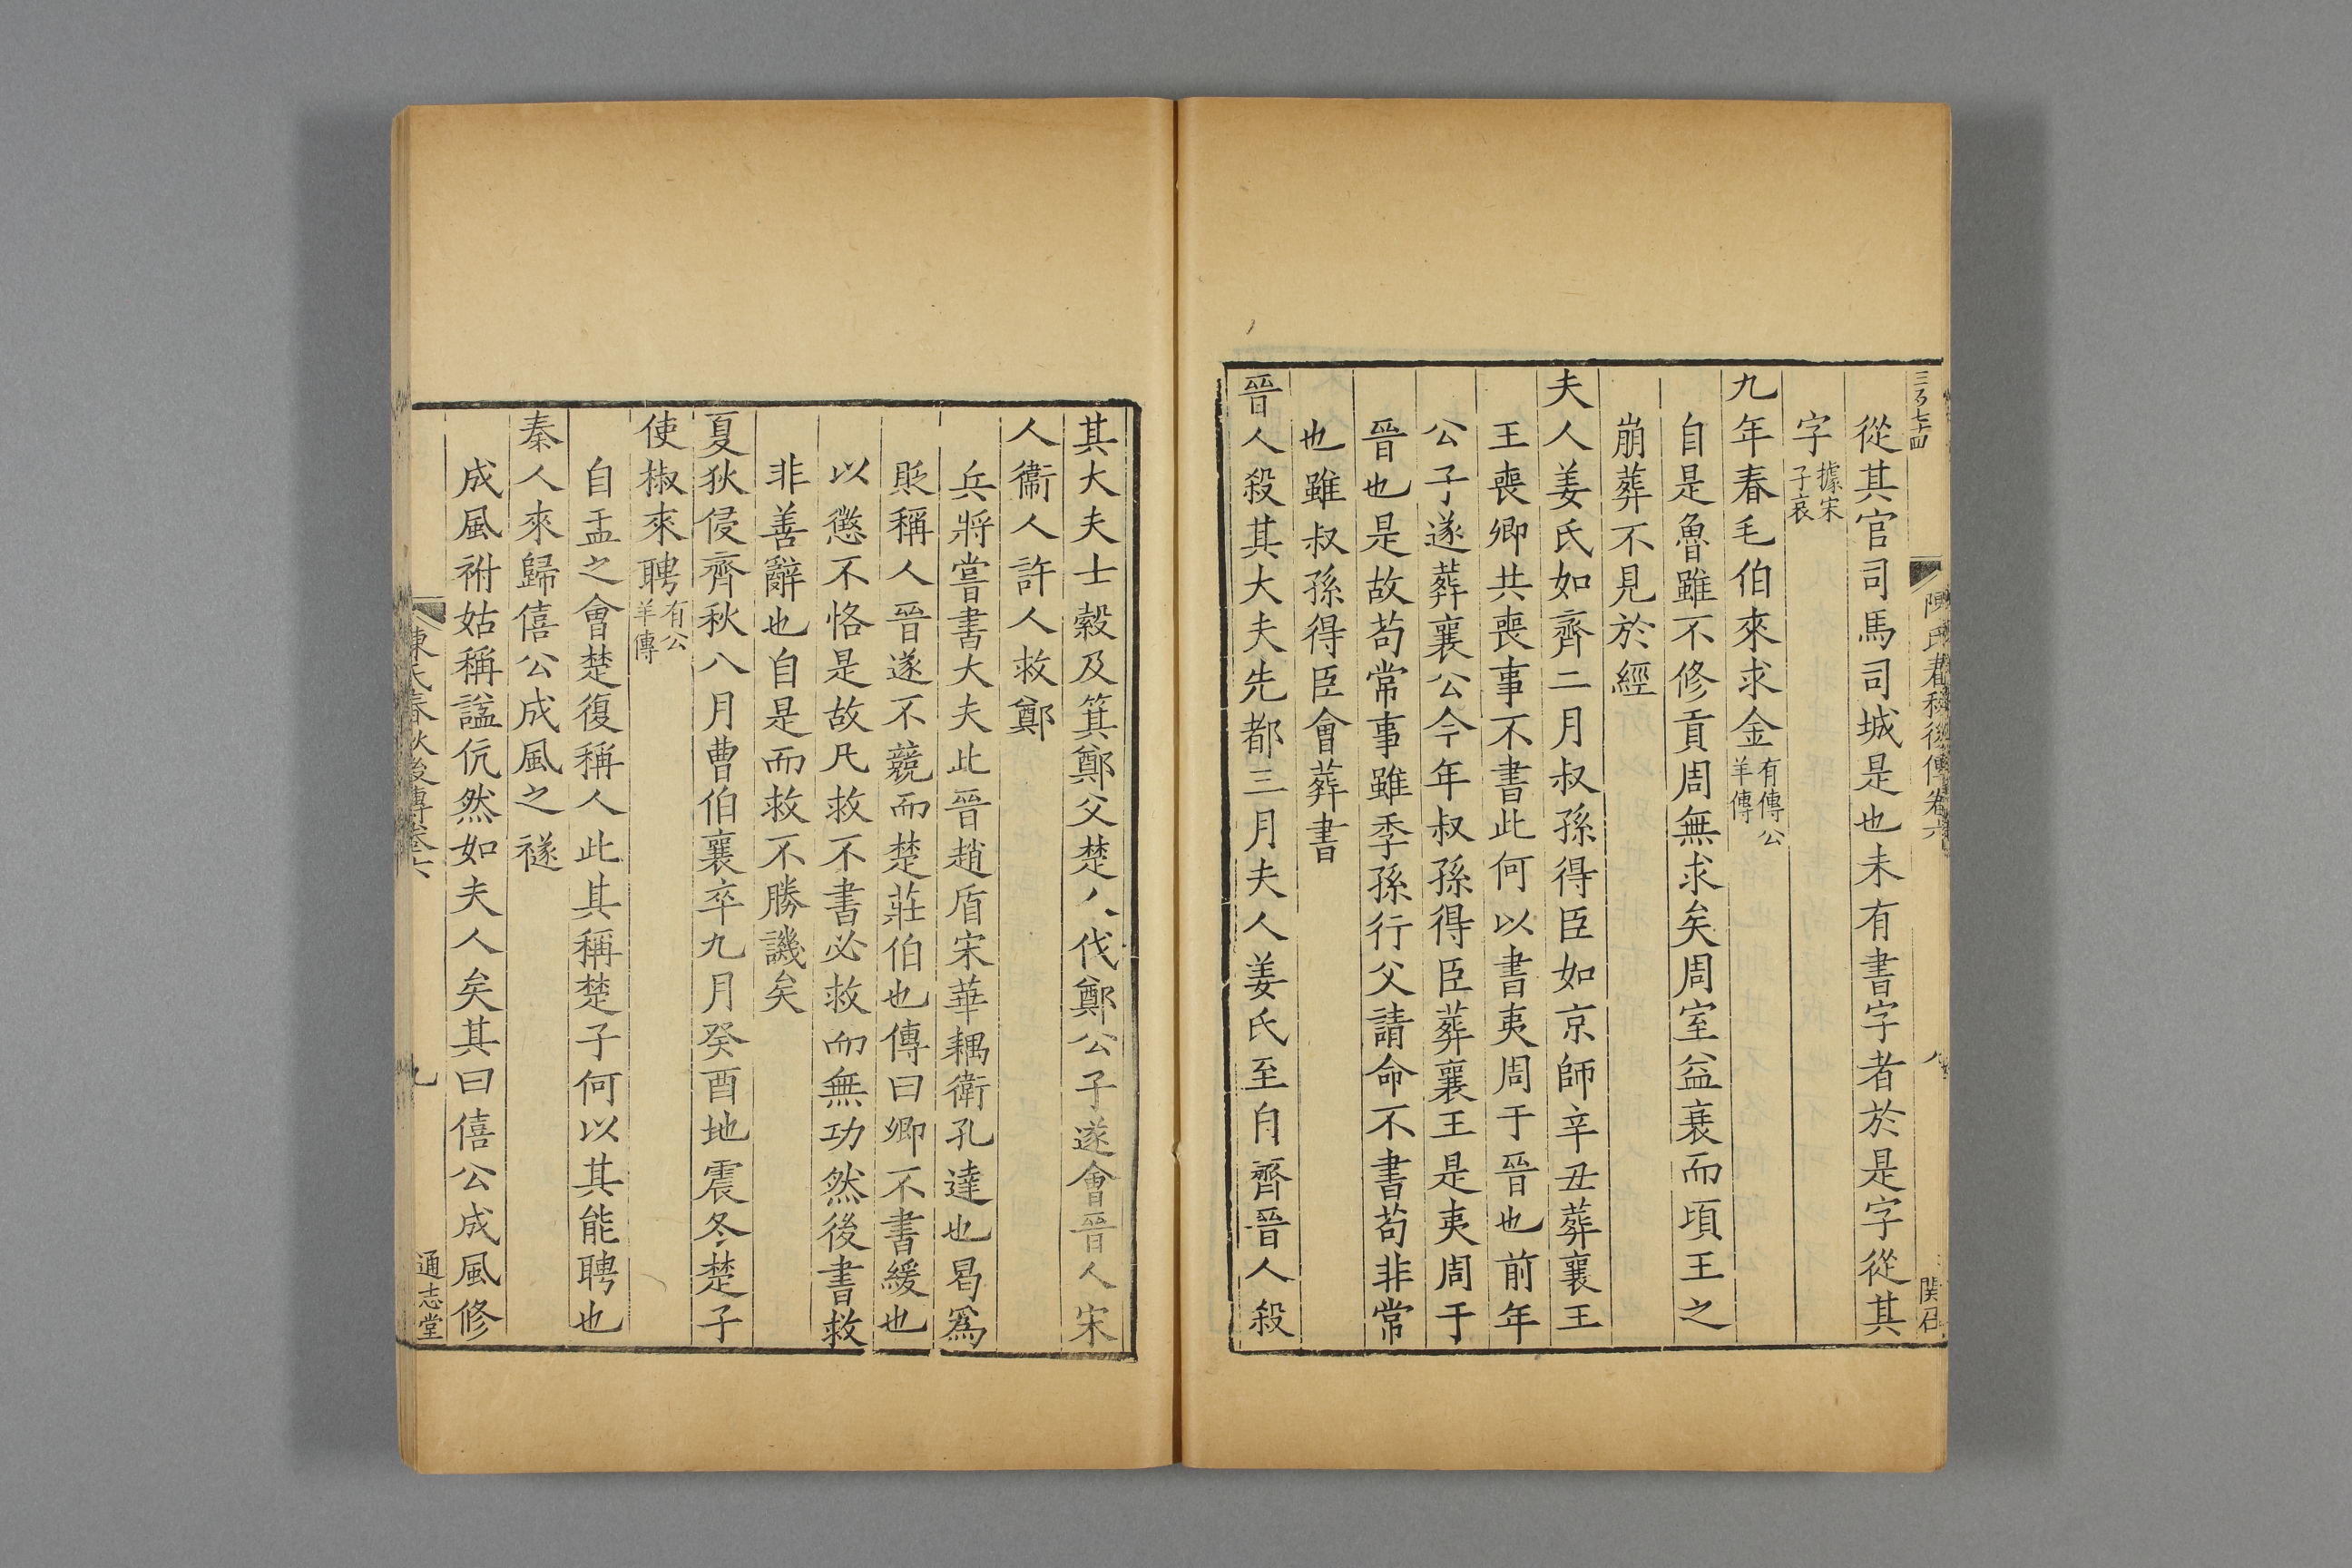 陳氏春秋後傳卷六
從其官司馬司城是也未有書字者於是字從其
字據宋子哀
九年春毛伯來求金有傳公羊傳
自是魯雖不修貢周無求矣周室益衰而頃王之
崩葬不見於經
夫人姜氏如齊二月叔孫得臣如京師辛丑葬襄王
王喪卿共喪事不書此何以書夷周于晉也前年
公子遂葬襄公今年叔孫得臣葬襄王是夷周于
晉也是故苟常事雖季孫行父請命不書苟非常
也雖叔孫得臣會葬書
晉人殺其大夫先都三月夫人姜氏至自齊晉人殺
其大夫士縠及箕鄭父楚人伐鄭公子遂會晉人宋
人衞人許人救鄭
兵將嘗書大夫此晉趙盾宋華耦衛孔達也曷爲
貶稱人晉遂不競而楚莊伯也傳曰卿不書緩也
以懲不恪是故凡救不書必救而無功然後書救
非善辭也自是而救不勝譏矣
夏狄侵齊秋八月曹伯襄卒九月癸酉地震冬楚子
使椒來聘有公羊傳
自盂之會楚復稱人此其稱楚子何以其能聘也
秦人來歸僖公成風之襚
成風祔姑稱諡伉然如夫人矣其曰僖公成風修
陳氏春秋後傳卷六
九
通志堂